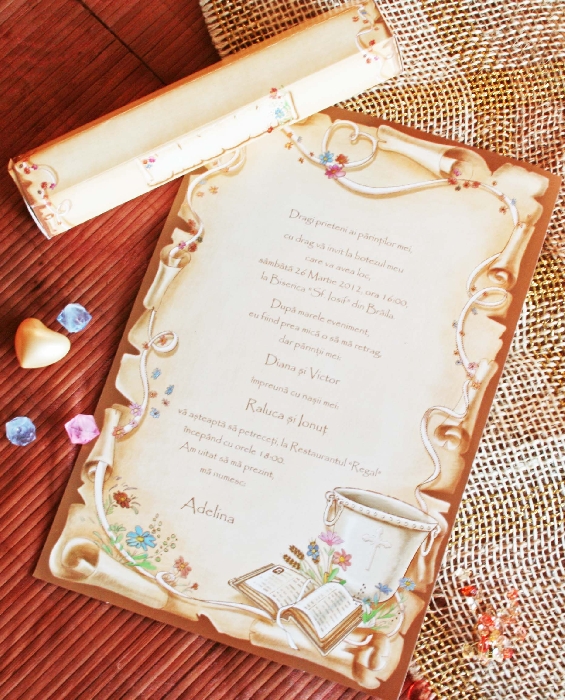 Dragi prieteni ai părinților mei,
cu drag vă invit la botezul meu
care va avea loc,
sâmbătă 26 Martie 2012, ora 16:00,
la Biserica "Sf. Iosif" din Brăila.
După marele eveniment,
eu fiind prea mică o să mă retrag,
dar părinții mei:
Diana și Victor
împreună cu nașii mei:
Raluca și Ionuț
vă așteaptă să petreceți, la Restaurantul "Regal"
începând cu orele 18:00.
Am uitat să mă prezint,
mă numesc:
Adelina